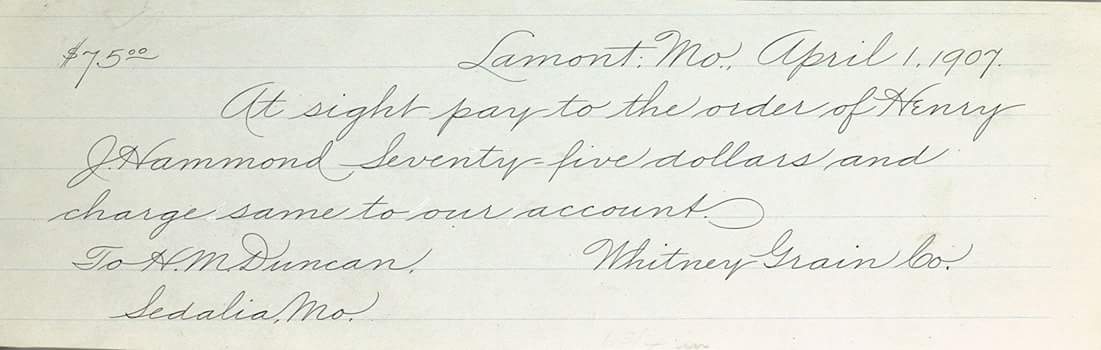 $75.00 Lamont, Mo., April 1, 1907.
At sight pay to the order of Henry
J. Hammond Seventy-five dollars and
charge same to our account.
To H. M. Duncan. Whitney Grain Co.
Sedalia, Mo.